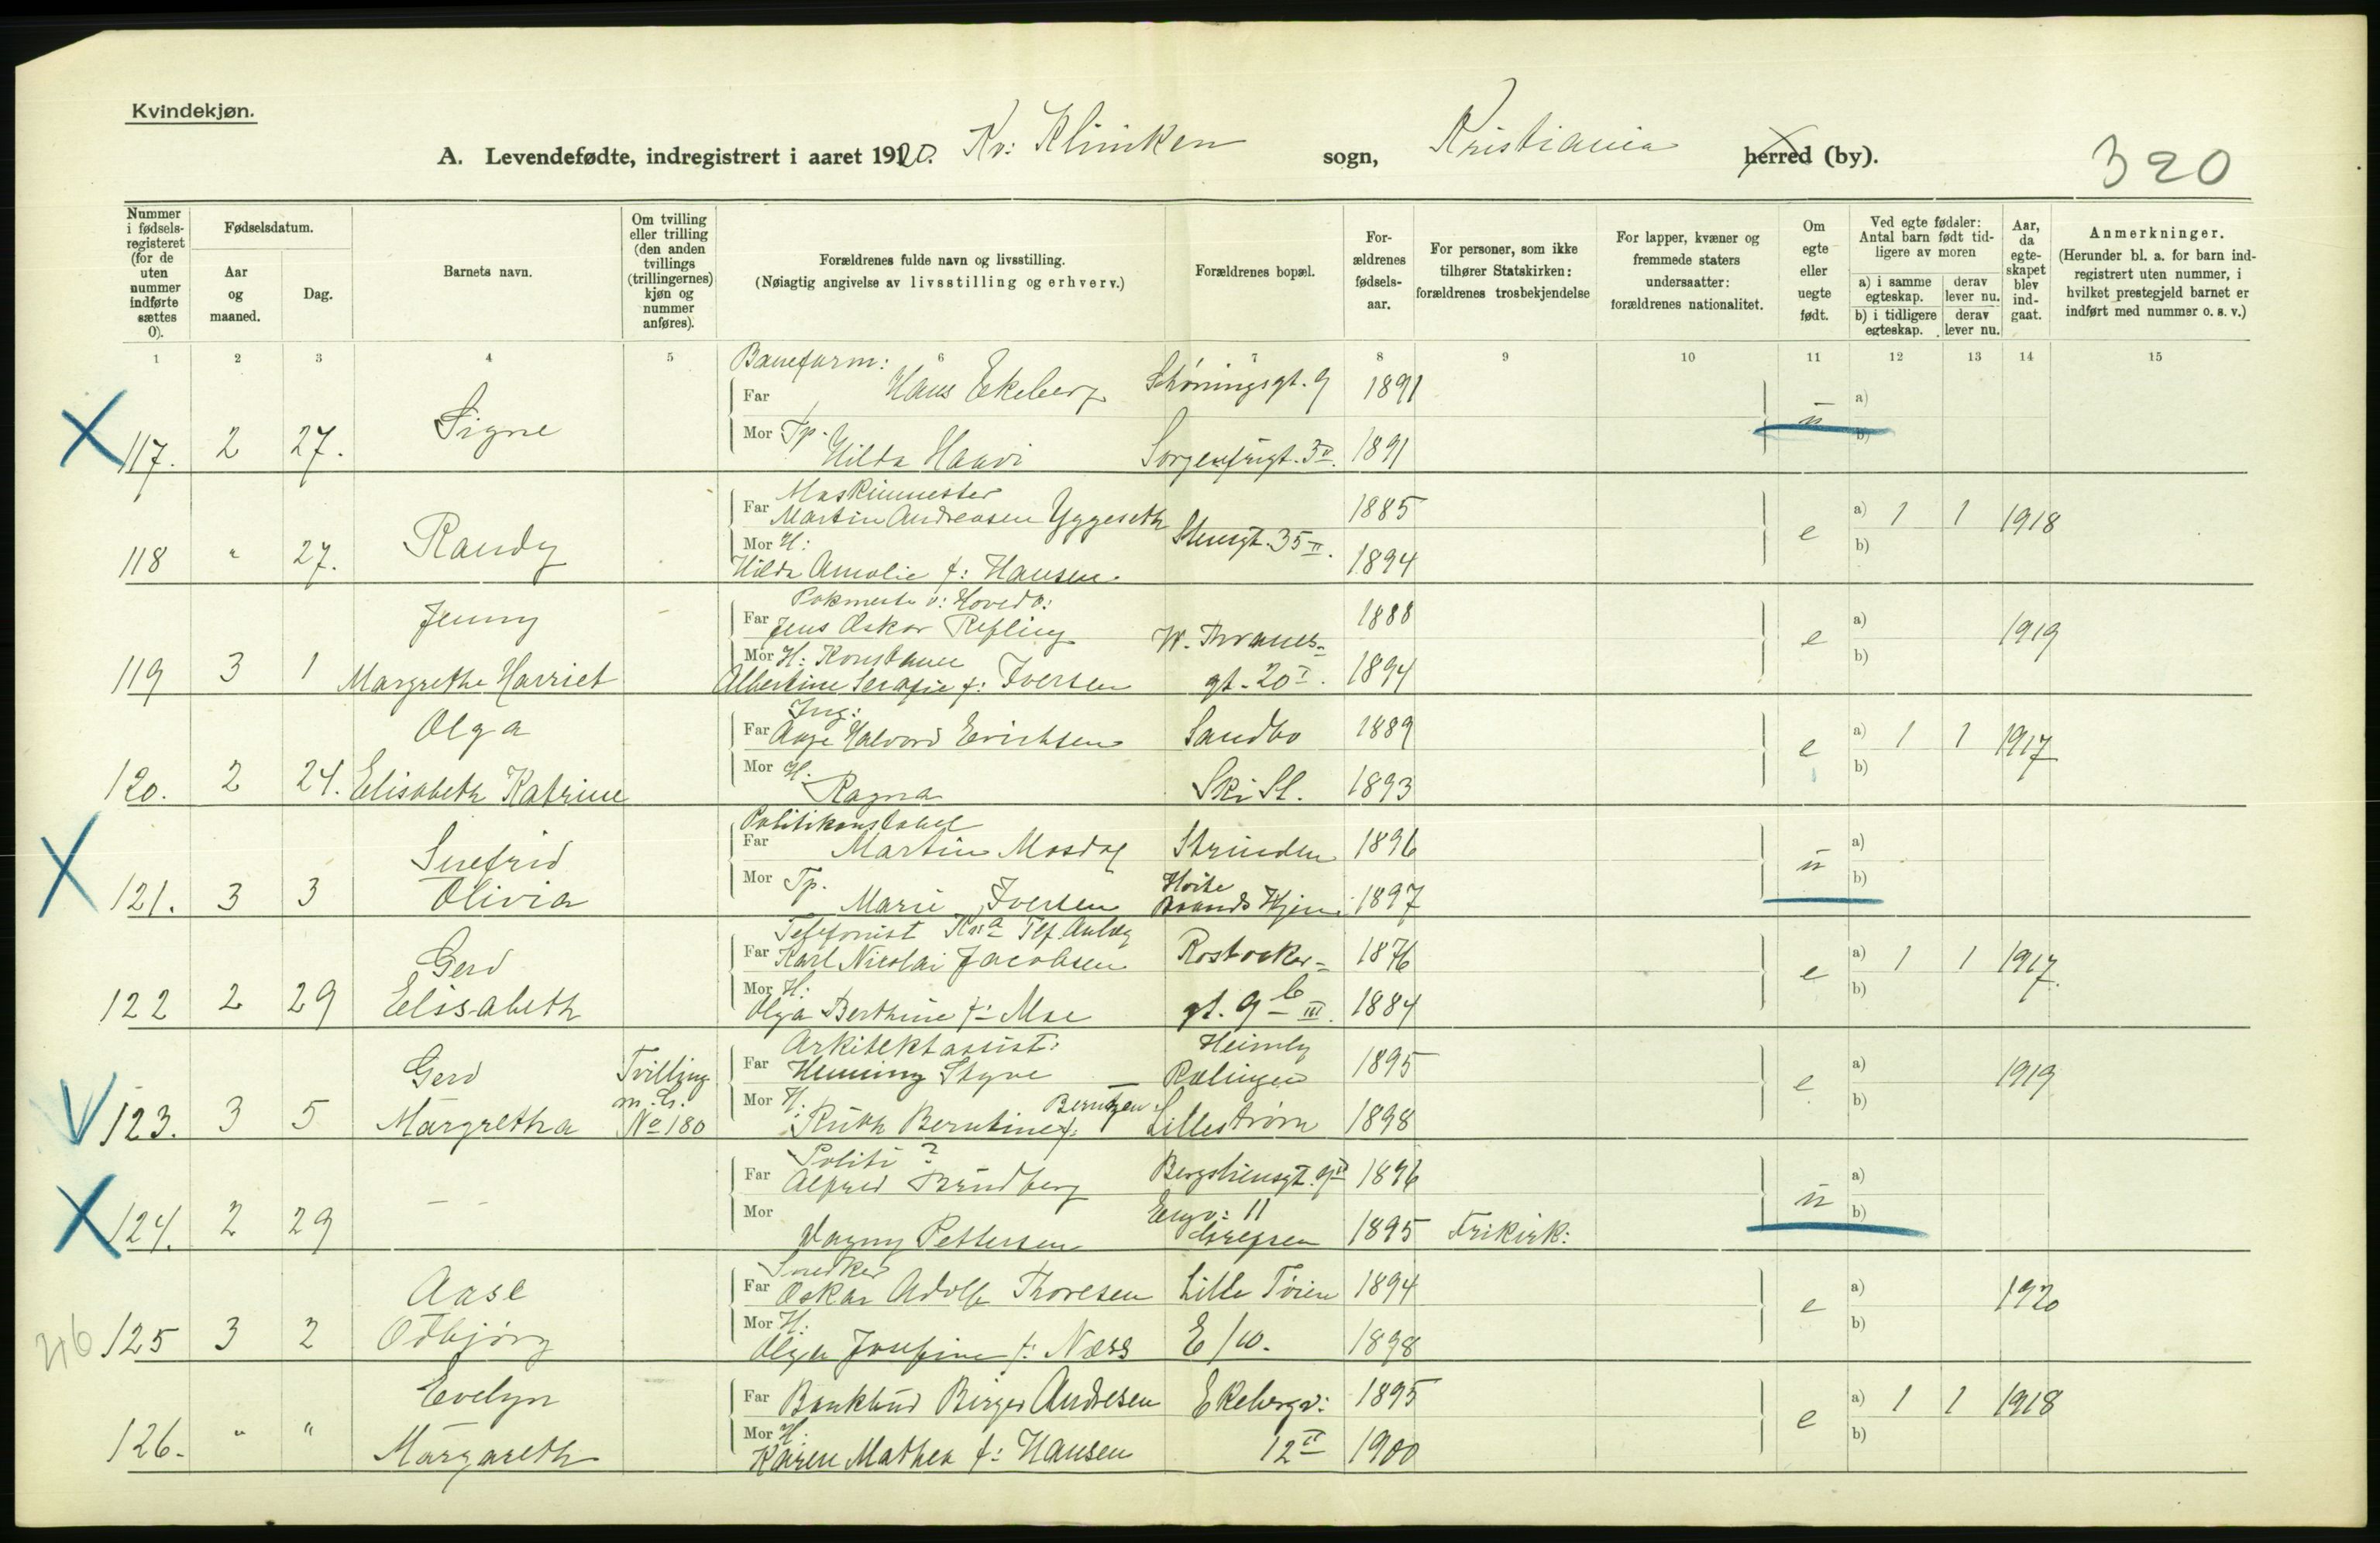 Kvindekjøn.
A. Levendefødte, indregistrert i aaret 1920. Kv: Kliniken sogn, Kristiania herred (by). 320
Nummer i fødselsregisteret (for de uten nummer indførte sættes 0).
Fødselsdatum.
Aar og maaned.
Dag.
Barnets navn.
Om tvilling eller trilling (den anden tvillings (trillingernes) kjøn og nummer anføres).
Forældrenes fulde navn og livsstilling.
(Nøiagtig angivelse av livsstilling og erhverv.)
Forældrenes bopæl.
Forældrenes fødselsaar.
For personer, som ikke tilhører Statskirken: forældrenes trosbekjendelse
For lapper, kvæner og fremmede staters undersaatter: forældrenes nationalitet.
Om egte eller uegte født.
Ved egte fødsler: Antal barn født tidligere av moren
a) i samme egteskap. derav lever nu.
b) i tidligere egteskap. derav lever nu.
Aar, da egteskapet blev indgaat.
Anmerkninger.
(Herunder bl. a. for barn indregistrert uten nummer, i hvilket prestegjeld barnet er indført med nummer o. s. v.)
1 2 3 4 5 6 7 8 9 10 11 12 13 14 15
Baneform:
Far Hans Ekeberg Schøningsgt. 9 1891 a)
117. 2 27. Signe u
Mor Tp. Hilda Haavi Sorgenfrigt. 3 1891 b)
Maskinmester
Far Martin Andreasen Yggeseth 1885 a) 1 1 1918
118 " 27. Randy Stensgt. 35 II. e
Mor H: b)
Hilda Amalie f: Hansen. 1894
Pakmester v: Hovedb:
Jenny Far Jens Oskar Refling W. Thranes- 1888 a) 1919
119 3 1 e
Mor H: Konstance b)
Margrethe Harriet Albertine Serafie f: Iversen gt. 20 I. 1894
Ing:
Olga Far Aage Halvord Erichsen Sandbo 1889 a) 1 1 1917
120. 2 24. e
Elisabeth Katrine Mor H. Ragna Ski St. 1893 b)
Politikonstabel
Snefrid Far Martin Mosdag Strinden 1896 a)
121. 3 3 Olivia u
Mor Tp. Marie Iversen Hvite Baands Hjem. 1897 b)
Telefonist Kra Tlf. Anlæg
Gerd Far Karl Nicolai Jacobsen Rostocker- 1876 a) 1 1 1917.
122 2 29 Elisabeth e
Mor H: b)
Olga Berthine f: Moe gt. 9 b III. 1884
Arkitektassist: Heimly
Gerd Tvilling Far Henning Styve Rælingen 1895 a) 1919
123. 3 5 Margretha m. G. No 180 e
Mor H: Ruth Berntine f: Berntzen Lillestrøm 1898 b)
Politi ?
Far Alfred Brudberg Bergstiensgt. 9 1896 a)
124. 2 29 — — u
Mor Vagny Pettersen Engv: 11 Grefsen 1895 Frikirk: b)
Snedker
Aase Far Oskar Adolf Thoresen Lille Tøien 1894 a) 1920
125 3 2 Odbjørg e
Mor H: b)
Olga Josefine f: Næss E/10. 1898
Evelyn Far Bankbud Birger Andresen Ekebergv: 1895 a) 1 1 1918
126. " " Margareth e
Mor H: b)
Karen Mathea f: Hansen 12 II 1900